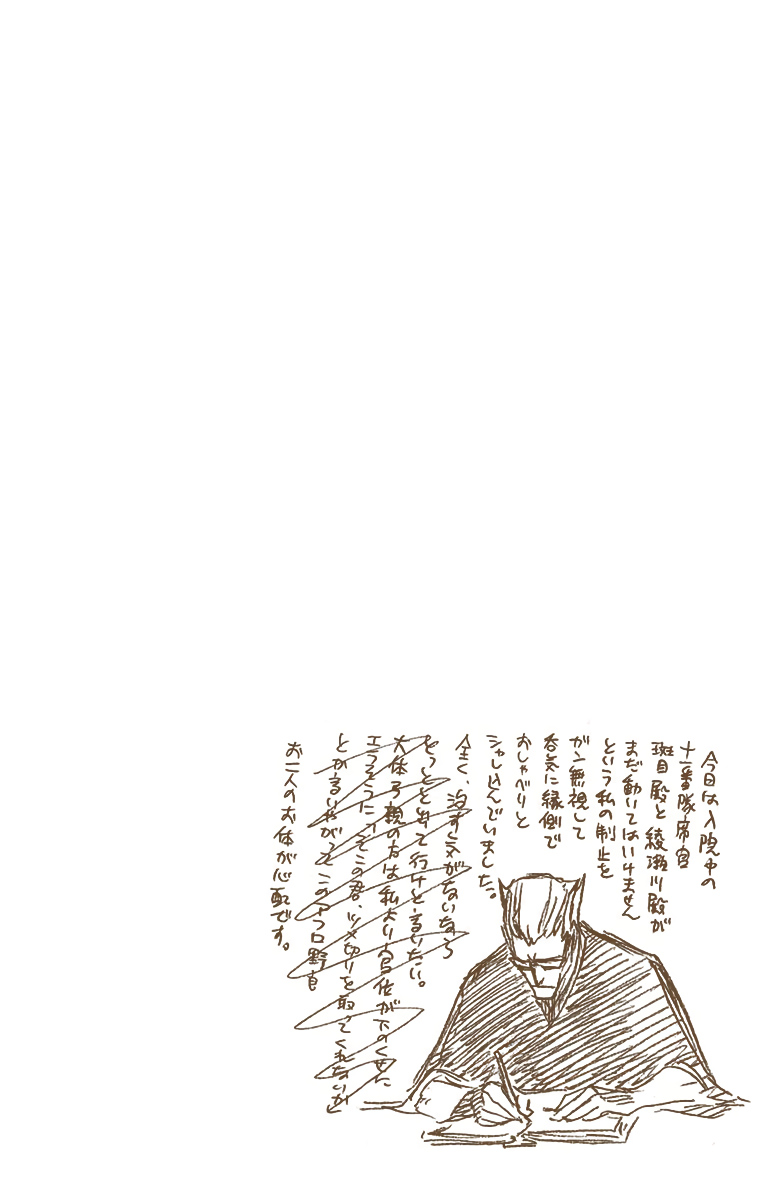 今日は入院中の
十一番隊席官
斑目殿と綾瀬川殿が
まだ動いてはいけません
という私の制止を
ガン無視して
呑気に縁側で
おしゃべりと
シャレ込んでいました。
全く、治す気がないなら
とっとと出て行けと言いたい。
大体弓親の方は私より官位が下のくせに
エラそうに「そこの君、ツメ切りを取ってくれないか」
とか言いやがって このアフロ野郎
お二人のお体が心配です。